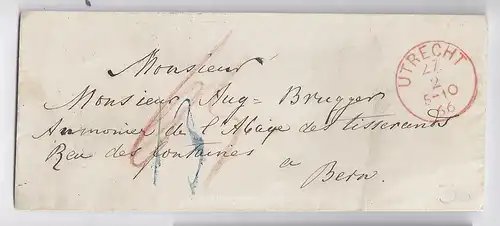 Monsieur
Monsieur Aug= Brugger
Aumonier de l'Abaye des tisserands
Rue des fontaines
a
Bern.
UTRECHT
27
2
8-10
66